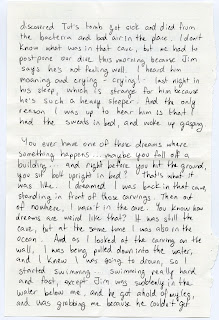 discovered Tut's tomb got sick and died from
the bacteria and bad air in the place. I don't
know what was in that cave, but we had to
postpone our dive this morning because Jim
says he's not feeling well. I heard him
moaning and crying - crying! - last night in
his sleep, which is strange for him because
he's such a heavy sleeper. And the only
reason I was up to hear him is that I
had the sweats in bed, and woke up gasping
You ever have one of those dreams where
something happens... maybe you fall off a
building... and right before you hit the ground,
you sit bolt upright in bed? That's what it
was like. I dreamed I was back in that cave,
standing in front of those carvings. Then out
of nowhere, I wasn't in the cave. You know how
dreams are weird like that? It was still the
cave, but at the same time I was also in the
ocean. And as I looked at the carving on the
wall, I was being pulled down into the water,
and I knew I was going to drown, so I
started swimming... swimming really hard
and fast, except Jim was suddenly in the
water below me, and he got ahold of my leg,
and was grabbing me because he couldn't get